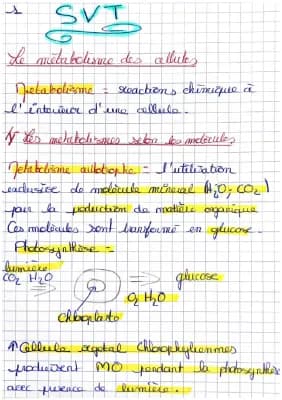 1
SVT
Le métabolisme des cellules
Métabolisme = réactions chimique à
l'intérieur d'une cellule.
Les métabolismes selon les molécules
Métabolisme autotrophe = l'utilisation
exclusive de molécule minéral (H₂O; CO₂)
par la production de matière organique
Ces molécules sont transformé en glucose.
Photosynthèse =
lumière
CO₂ H₂O ⇒ ⇒ glucose
O₂ H₂O
chloroplaste
Cellule végétal Chlorophyliennes
produisent MO pendant la photosynthèse
avec présence de lumière.